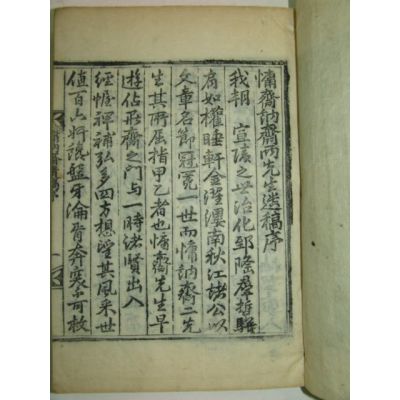 慵齋訥齋兩先生遺稿序
我朝 宣陵之世治化郅隆群哲騈
肩如權睡軒金濯纓南秋江諸公以
文章名節冠冕一世而慵訥齋二先
生其所屈指甲乙者也慵齋先生早
遊佔畢齋之門与一時諸賢出入
經幄裨補弘多四方想望其風采世
值百六讒盤牙淪胥不可救